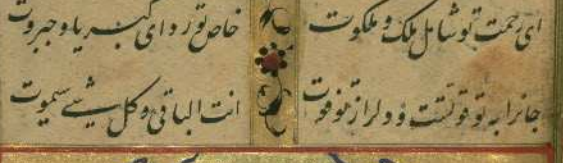 ای رحمت تو شامل ملک و ملکوت
خاص تو ردای کبریا و جبروت
جانرا به تو قوتست و دلرا ز تو قوت
انت الباقی و کل شیء سیموت